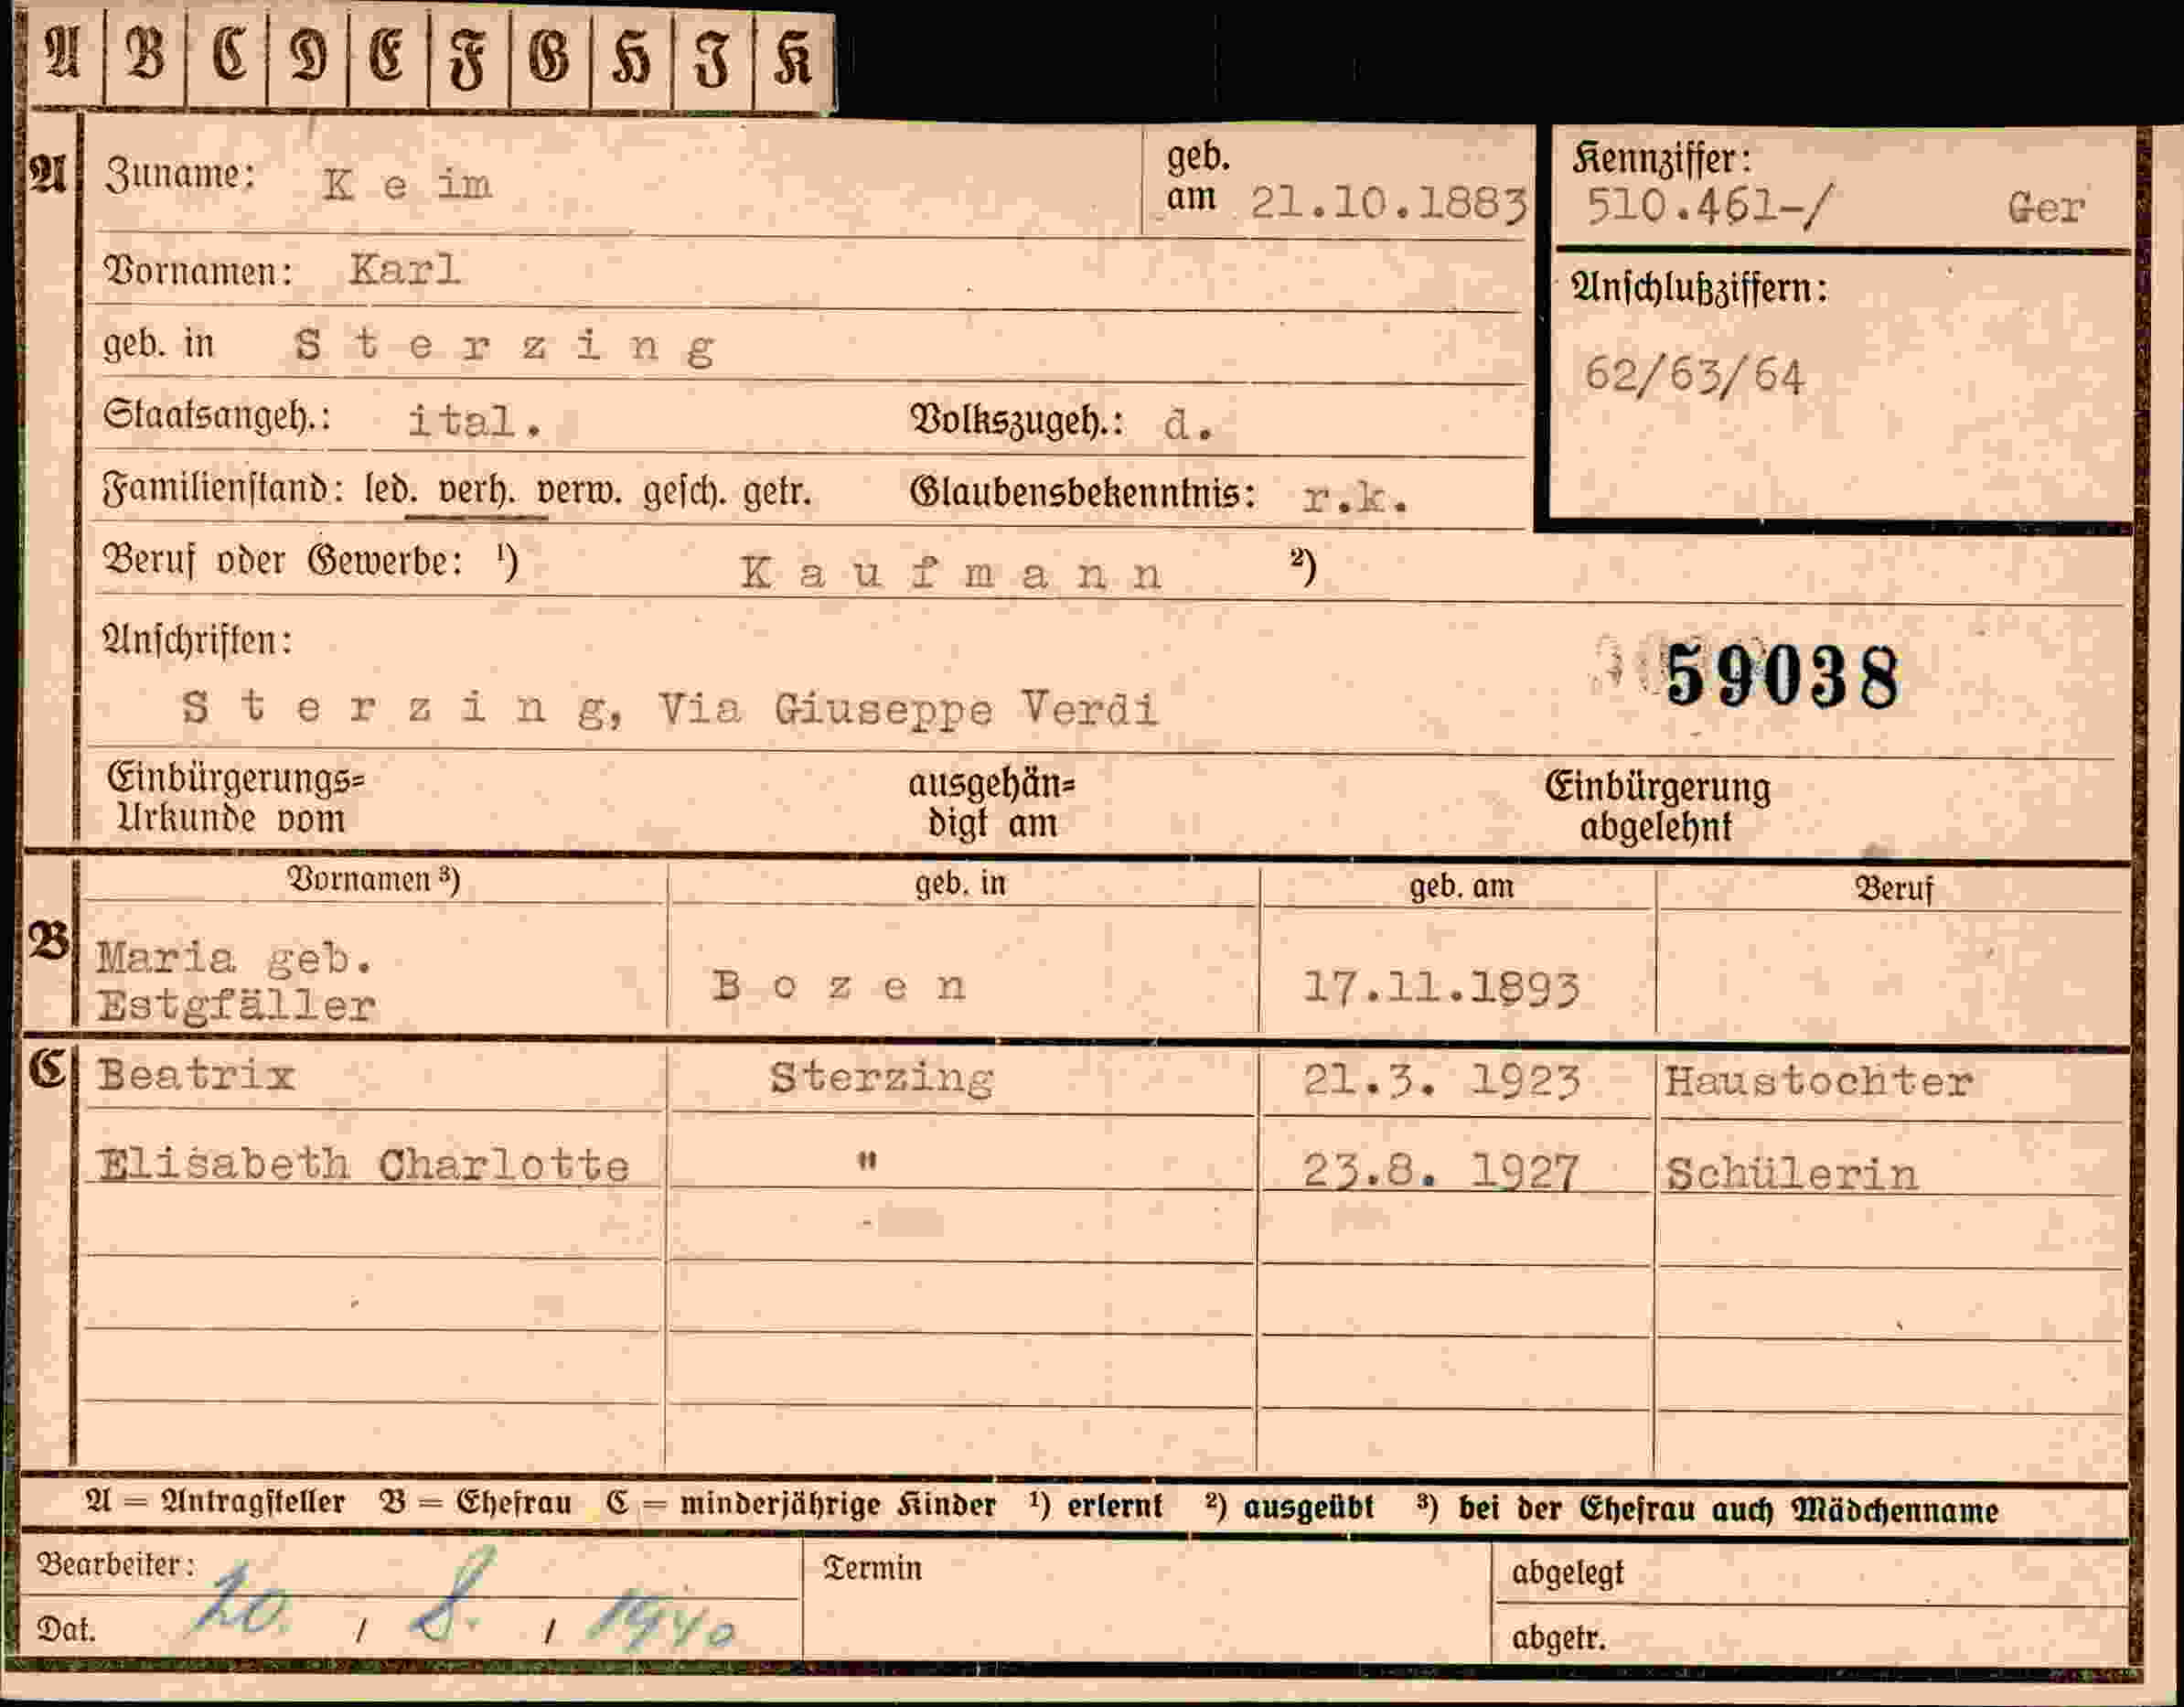 A B C D E F G H J K
A Zuname: Keim geb. am 21.10.1883
Kennziffer: 510.461-/ Ger
Vornamen: Karl
Anschlußziffern:
geb. in Sterzing
62/63/64
Staatsangeh.: ital. Volkszugeh.: d.
Familienstand: led. verh. verw. gesch. getr. Glaubensbekenntnis: r.k.
Beruf oder Gewerbe: ¹) Kaufmann ²)
Anschriften:
59038
Sterzing, Via Giuseppe Verdi
Einbürgerungs= ausgehän= Einbürgerung
Urkunde vom digt am abgelehnt
Vornamen ³) geb. in geb. am Beruf
B Maria geb.
Estgfäller Bozen 17.11.1893
C Beatrix Sterzing 21.3. 1923 Haustochter
Elisabeth Charlotte " 23.8. 1927 Schülerin
A = Antragsteller B = Ehefrau C = minderjährige Kinder ¹) erlernt ²) ausgeübt ³) bei der Ehefrau auch Mädchenname
Bearbeiter: Termin abgelegt
Dat. 20. / 8. / 1940 abgetr.